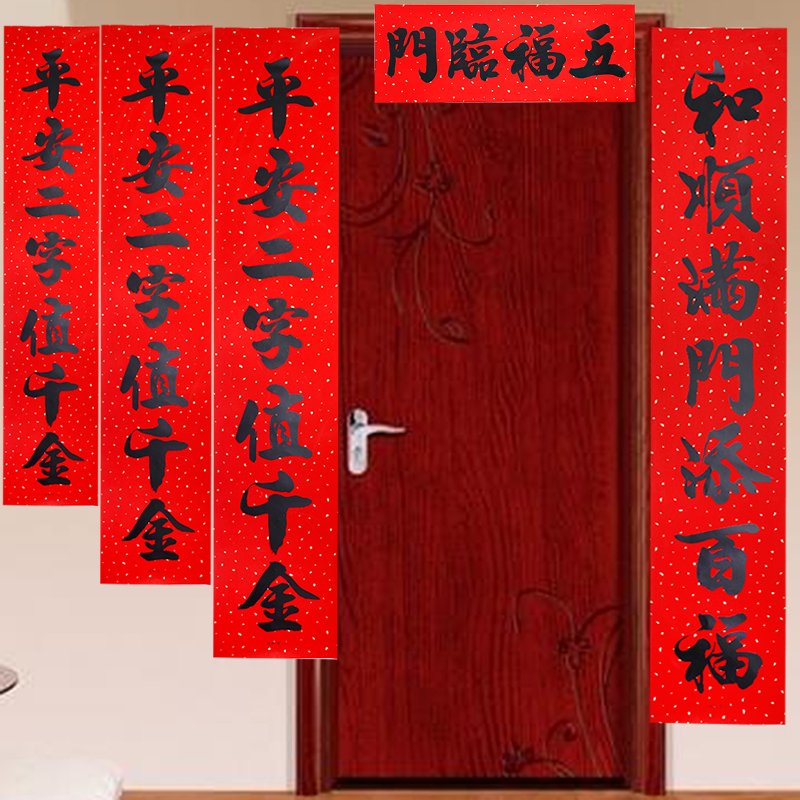 五福臨門
和順满門添百福
平安二字值千金
平安二字值千金
平安二字值千金